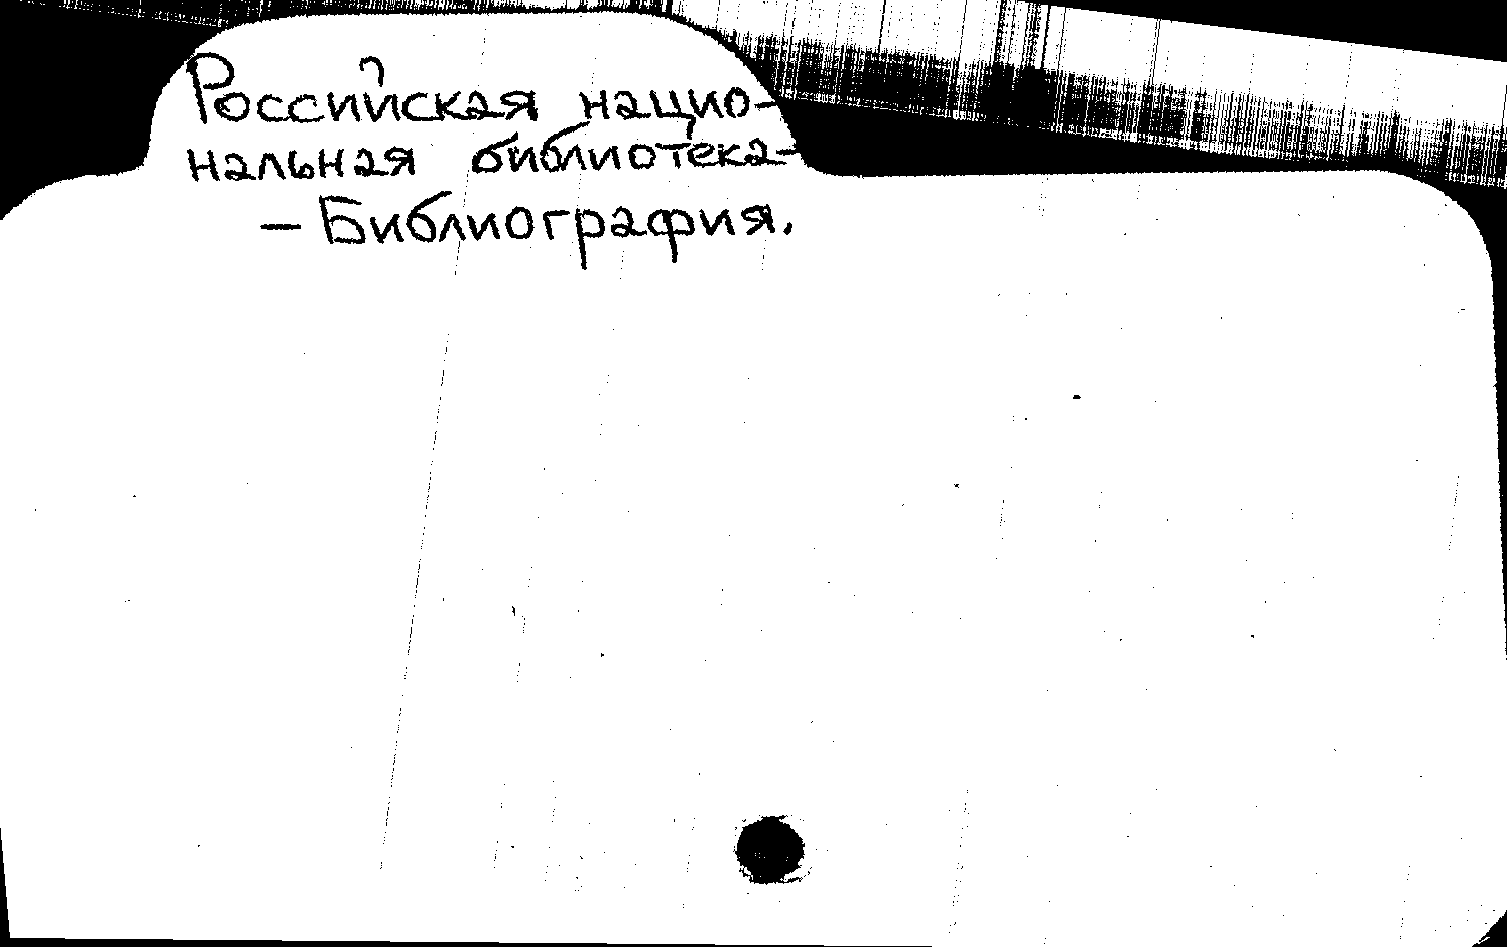 Российская нацио-
нальная библиотека-
- Библиография.